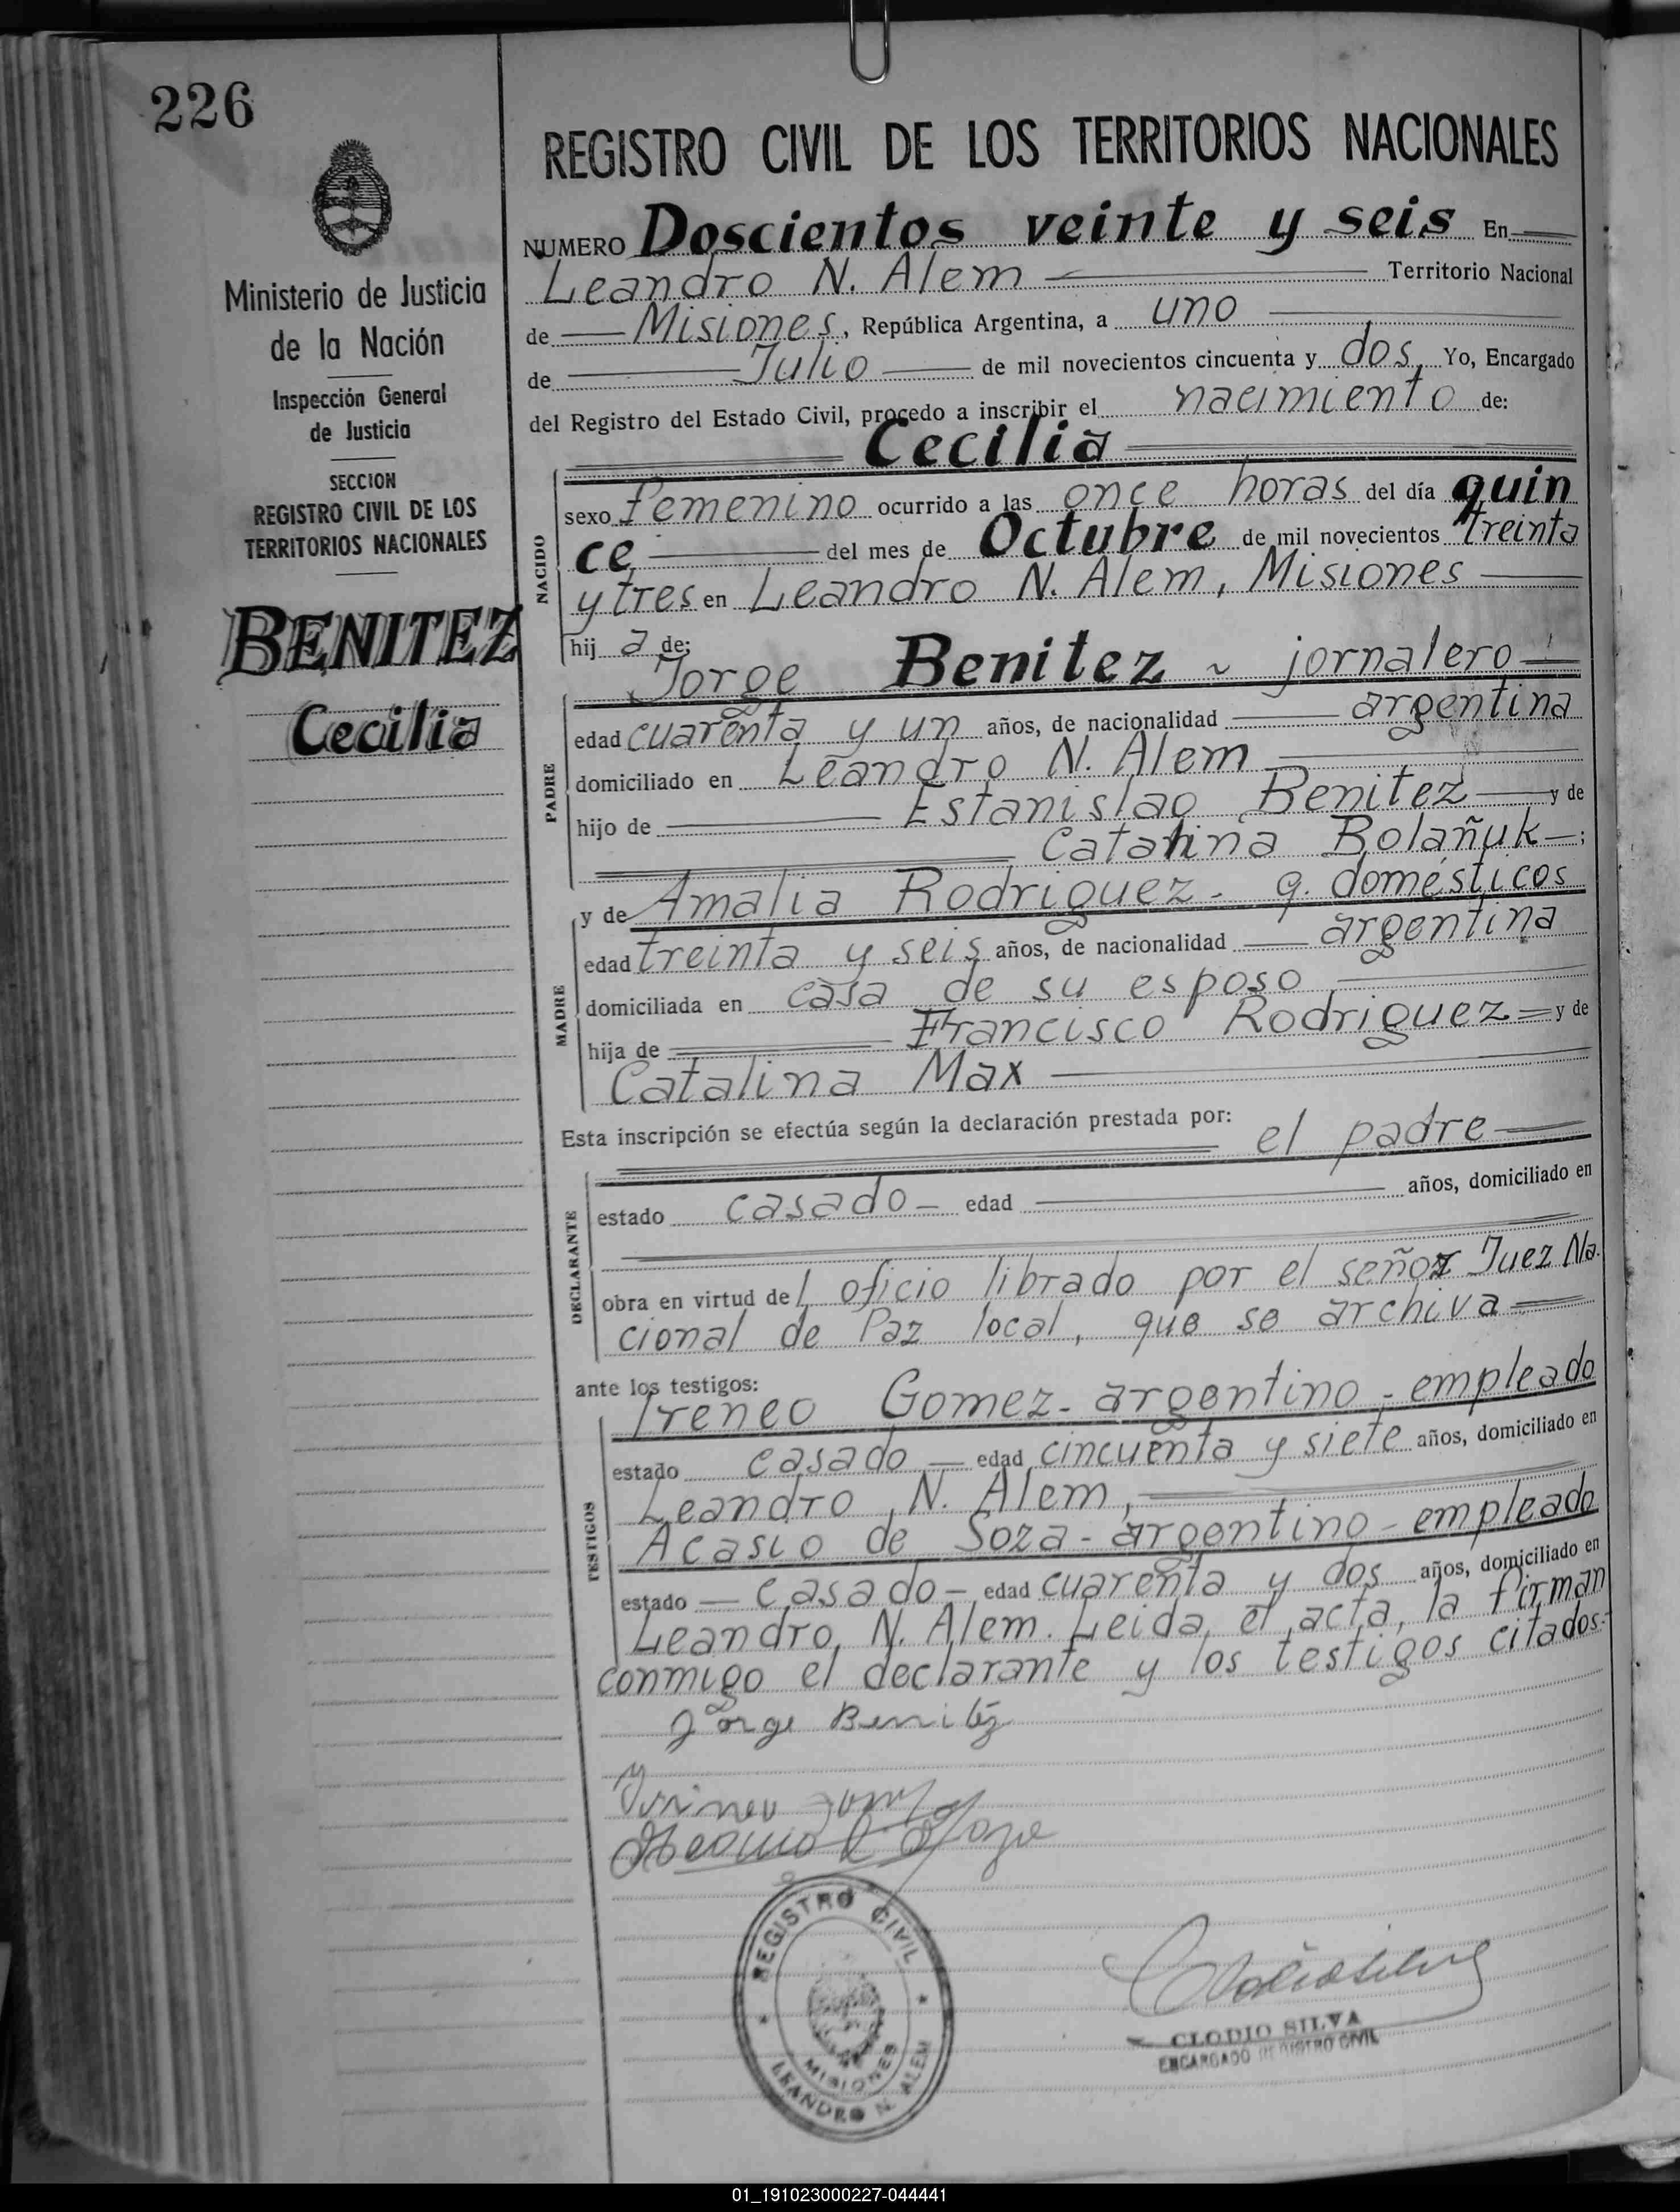 226
Ministerio de Justicia
de la Nación
Inspección General
de Justicia
SECCION
REGISTRO CIVIL DE LOS
TERRITORIOS NACIONALES
BENITEZ
Cecilia
REGISTRO CIVIL DE LOS TERRITORIOS NACIONALES
NUMERO Doscientos veinte y seis En
Leandro N. Alem Territorio Nacional
de Misiones, República Argentina, a uno
de Julio de mil novecientos cincuenta y dos Yo, Encargado
del Registro del Estado Civil, procedo a inscribir el nacimiento de:
Cecilia
NACIDO
sexo femenino ocurrido a las once horas del día quin
ce del mes de Octubre de mil novecientos treinta
y tres en Leandro N. Alem, Misiones
hij a de:
Jorge Benitez ~ jornalero
PADRE
edad cuarenta y un años, de nacionalidad argentina
domiciliado en Leandro N. Alem
hijo de Estanislao Benitez y de
Catalina Bolañuk ;
y de Amalia Rodriguez - q. domésticos
MADRE
edad treinta y seis años, de nacionalidad argentina
domiciliada en casa de su esposo
hija de Francisco Rodriguez y de
Catalina Max
Esta inscripción se efectúa según la declaración prestada por:
el padre
DECLARANTE
estado casado - edad años, domiciliado en
obra en virtud del oficio librado por el señor Juez Na.
cional de Paz local, que se archiva
ante los testigos:
TESTIGOS
Ireneo Gomez - argentino - empleado
estado casado edad cincuenta y siete años, domiciliado en
Leandro N. Alem,
Acasio de Soza - argentino - empleado
estado casado - edad cuarenta y dos años, domiciliado en
Leandro N. Alem. Leida el acta, la firman
conmigo el declarante y los testigos citados.-
Jorge Benitéz
REGISTRO CIVIL
MISIONES
LEANDRO N. ALEM
CLODIO SILVA
ENCARGADO REGISTRO CIVIL
01_191023000227-044441